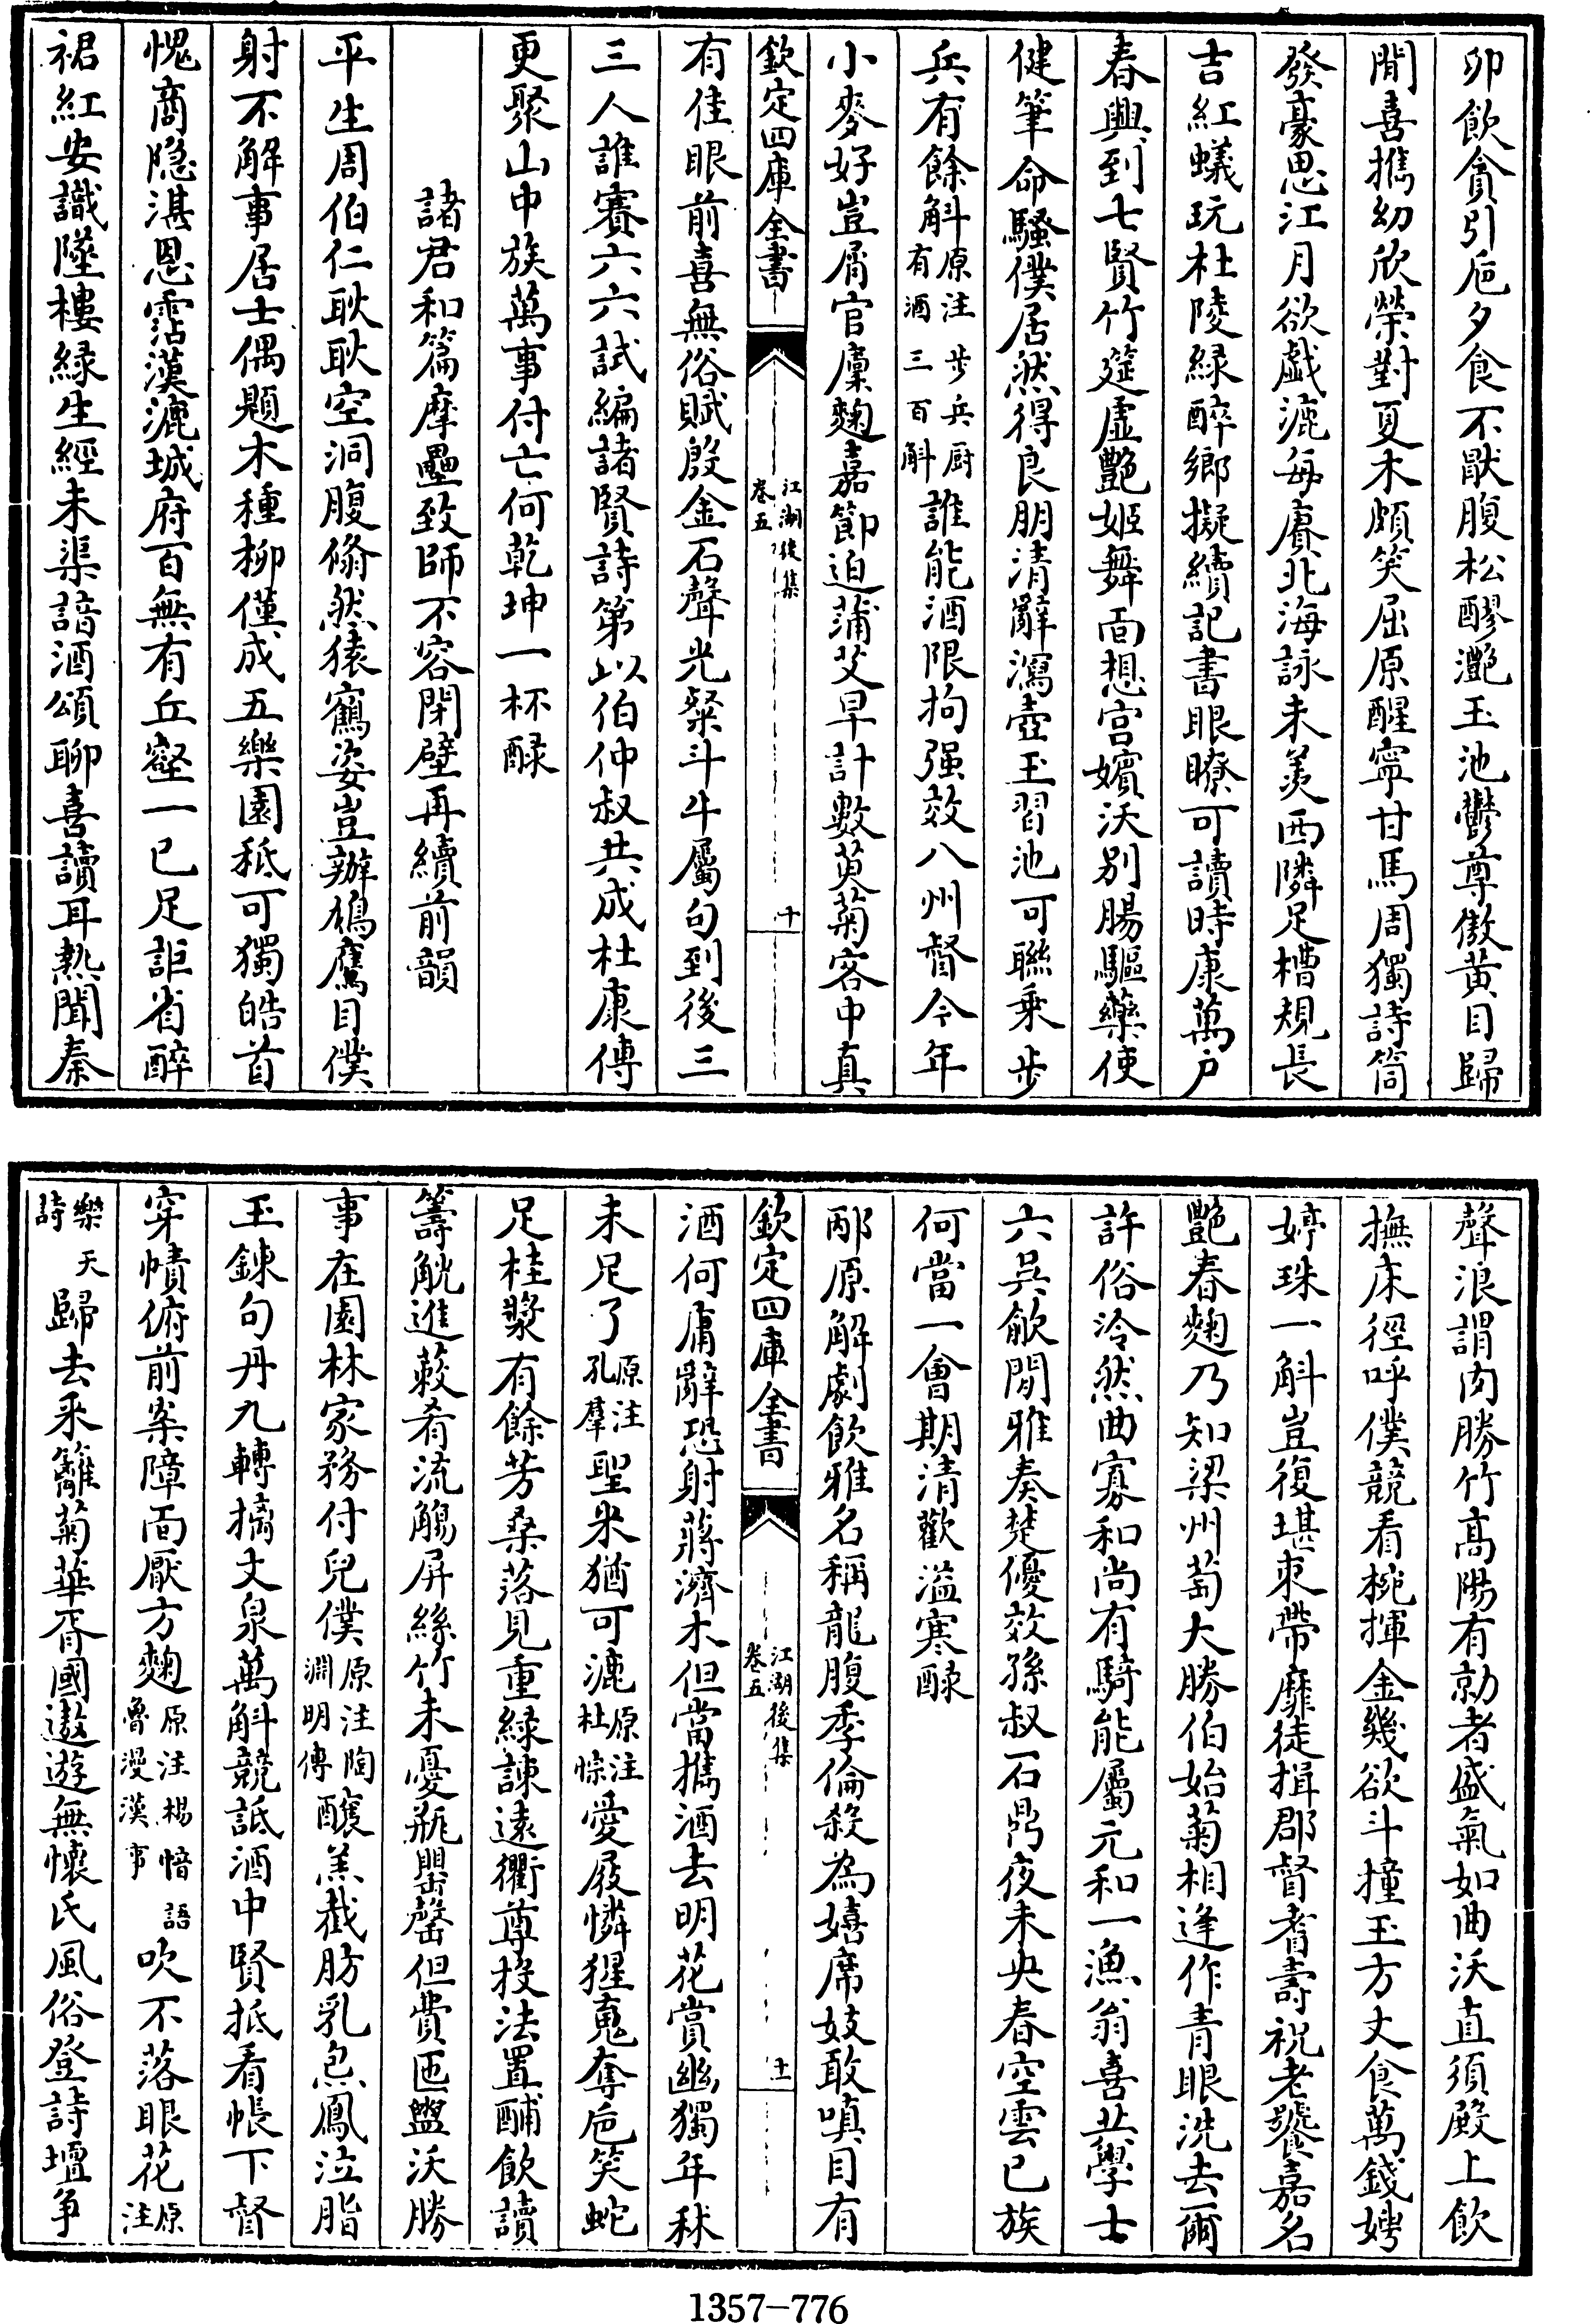 卯飲貪引巵夕食不厭腹松醪灔玉池鬱尊傲黃目歸
閒喜攜幼欣榮對夏木頗笑屈原醒寧甘馬周獨詩筒
發豪思江月欲戲漉每賡北海詠未羨西隣足槽規長
吉紅蟻玩杜陵緑醉鄉擬續記書眼瞭可讀時康萬户
春興到七賢竹筵虛艷姬舞面想宫嬪沃别腸驅藥使
健筆命騷僕居然得良朋清辭瀉壺玉習池可聯乗步
兵有餘斛原注步兵厨有酒三百斛誰能酒限拘强效八州督今年
小麥好豈屑官廩麴嘉節迫蒲艾早計數萸菊客中真
欽定四庫全書 江湖後集卷五 十
有佳眼前喜無俗賦殷金石聲光粲斗牛屬句到後三
三人誰賽六六試編諸賢詩第以伯仲叔共成杜康傳
更聚山中族萬事付亡何乾坤一杯醁
諸君和篇摩壘致師不容閉壁再續前韻
平生周伯仁耿耿空洞腹翛然猿鶴姿豈辦鵷鷹目僕
射不解事居士偶題木種柳僅成五樂園秪可獨皓首
愧商隐湛恩霑漢漉城府百無有丘壑一已足詎省醉
裙紅安識墜樓緑生經未渠諳酒頌聊喜讀耳熱聞秦
聲浪謂肉勝竹高陽有勍者盛氣如曲沃直須殿上飲
撫床徑呼僕競看椀揮金幾欲斗撞玉方丈食萬錢娉
婷珠一斛豈復堪束帶靡徒揖郡督耆壽祝老饕嘉名
艷春麴乃知梁州萄大勝伯始菊相逢作青眼洗去爾
許俗泠然曲寡和尚有騎能屬元和一漁翁喜並學士
六吳歈間雅奏楚優效孫叔石鼎夜未央春空雲已族
何當一會期清歡溢寒醁
邴原解劇飲雅名稱龍腹季倫殺為嬉席妓敢嗔目有
欽定四庫全書 江湖後集卷五 十一
酒何庸辭恐射蔣濟木但當攜酒去明花賞幽獨年秫
未足了原注孔羣聖米猶可漉原注杜悰愛屐憐猩蒐奪巵笑蛇
足桂漿有餘芳桑落見重緑諫遠衢尊投法置酺飲讀
籌觥進蔌肴流觴屏絲竹未憂瓶罌罄但費匜盥沃勝
事在園林家務付兒僕原注陶淵明傳醲羔截肪乳炰鳳泣脂
玉鍊句丹九轉摛文泉萬斛競詆酒中賢抵看帳下督
穿幘俯前案障面厭方麴原注楊愔語魯漫漢事吹不落眼花原注
樂天詩歸去釆籬菊華胥國遨遊無懷氏風俗登詩壇争
1357-776